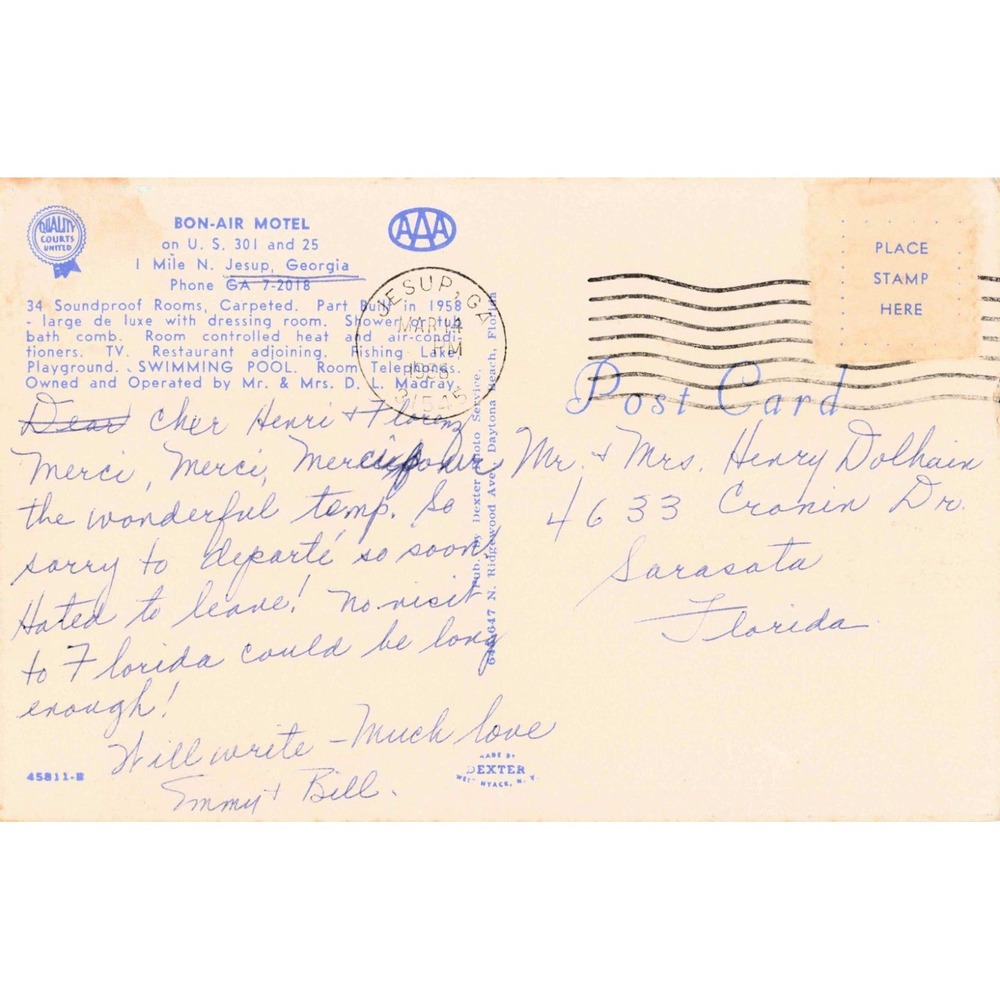 QUALITY
COURTS
UNITED
BON-AIR MOTEL
on U. S. 301 and 25
1 Mile N. Jesup, Georgia
Phone GA 7-2018
34 Soundproof Rooms, Carpeted. Part Built in 1958
- large de luxe with dressing room. Shower or tub
bath comb. Room controlled heat and air-condi-
tioners. TV. Restaurant adjoining. Fishing Lake.
Playground. SWIMMING POOL. Room Telephones.
Owned and Operated by Mr. & Mrs. D. L. Madray.
AAA
JESUP, GA
MAR 14
PM
31545
PLACE
STAMP
HERE
Post Card
Dear Cher Henri +
Merci, Merci, Merci
the wonderful temp. So
sorry to departé so soon,
Hated to leave! No visit
to Florida could be long
enough!
Will write - Much love
Emmy + Bill.
Pub. by Dexter Photo Service,
N. Ridgewood Ave., Daytona Beach, Florida
Mr. + Mrs. Henry Dolhain
4633 Cronin Dr.
Sarasota
Florida
45811-B
MADE BY
DEXTER
WEST NYACK, N. Y.